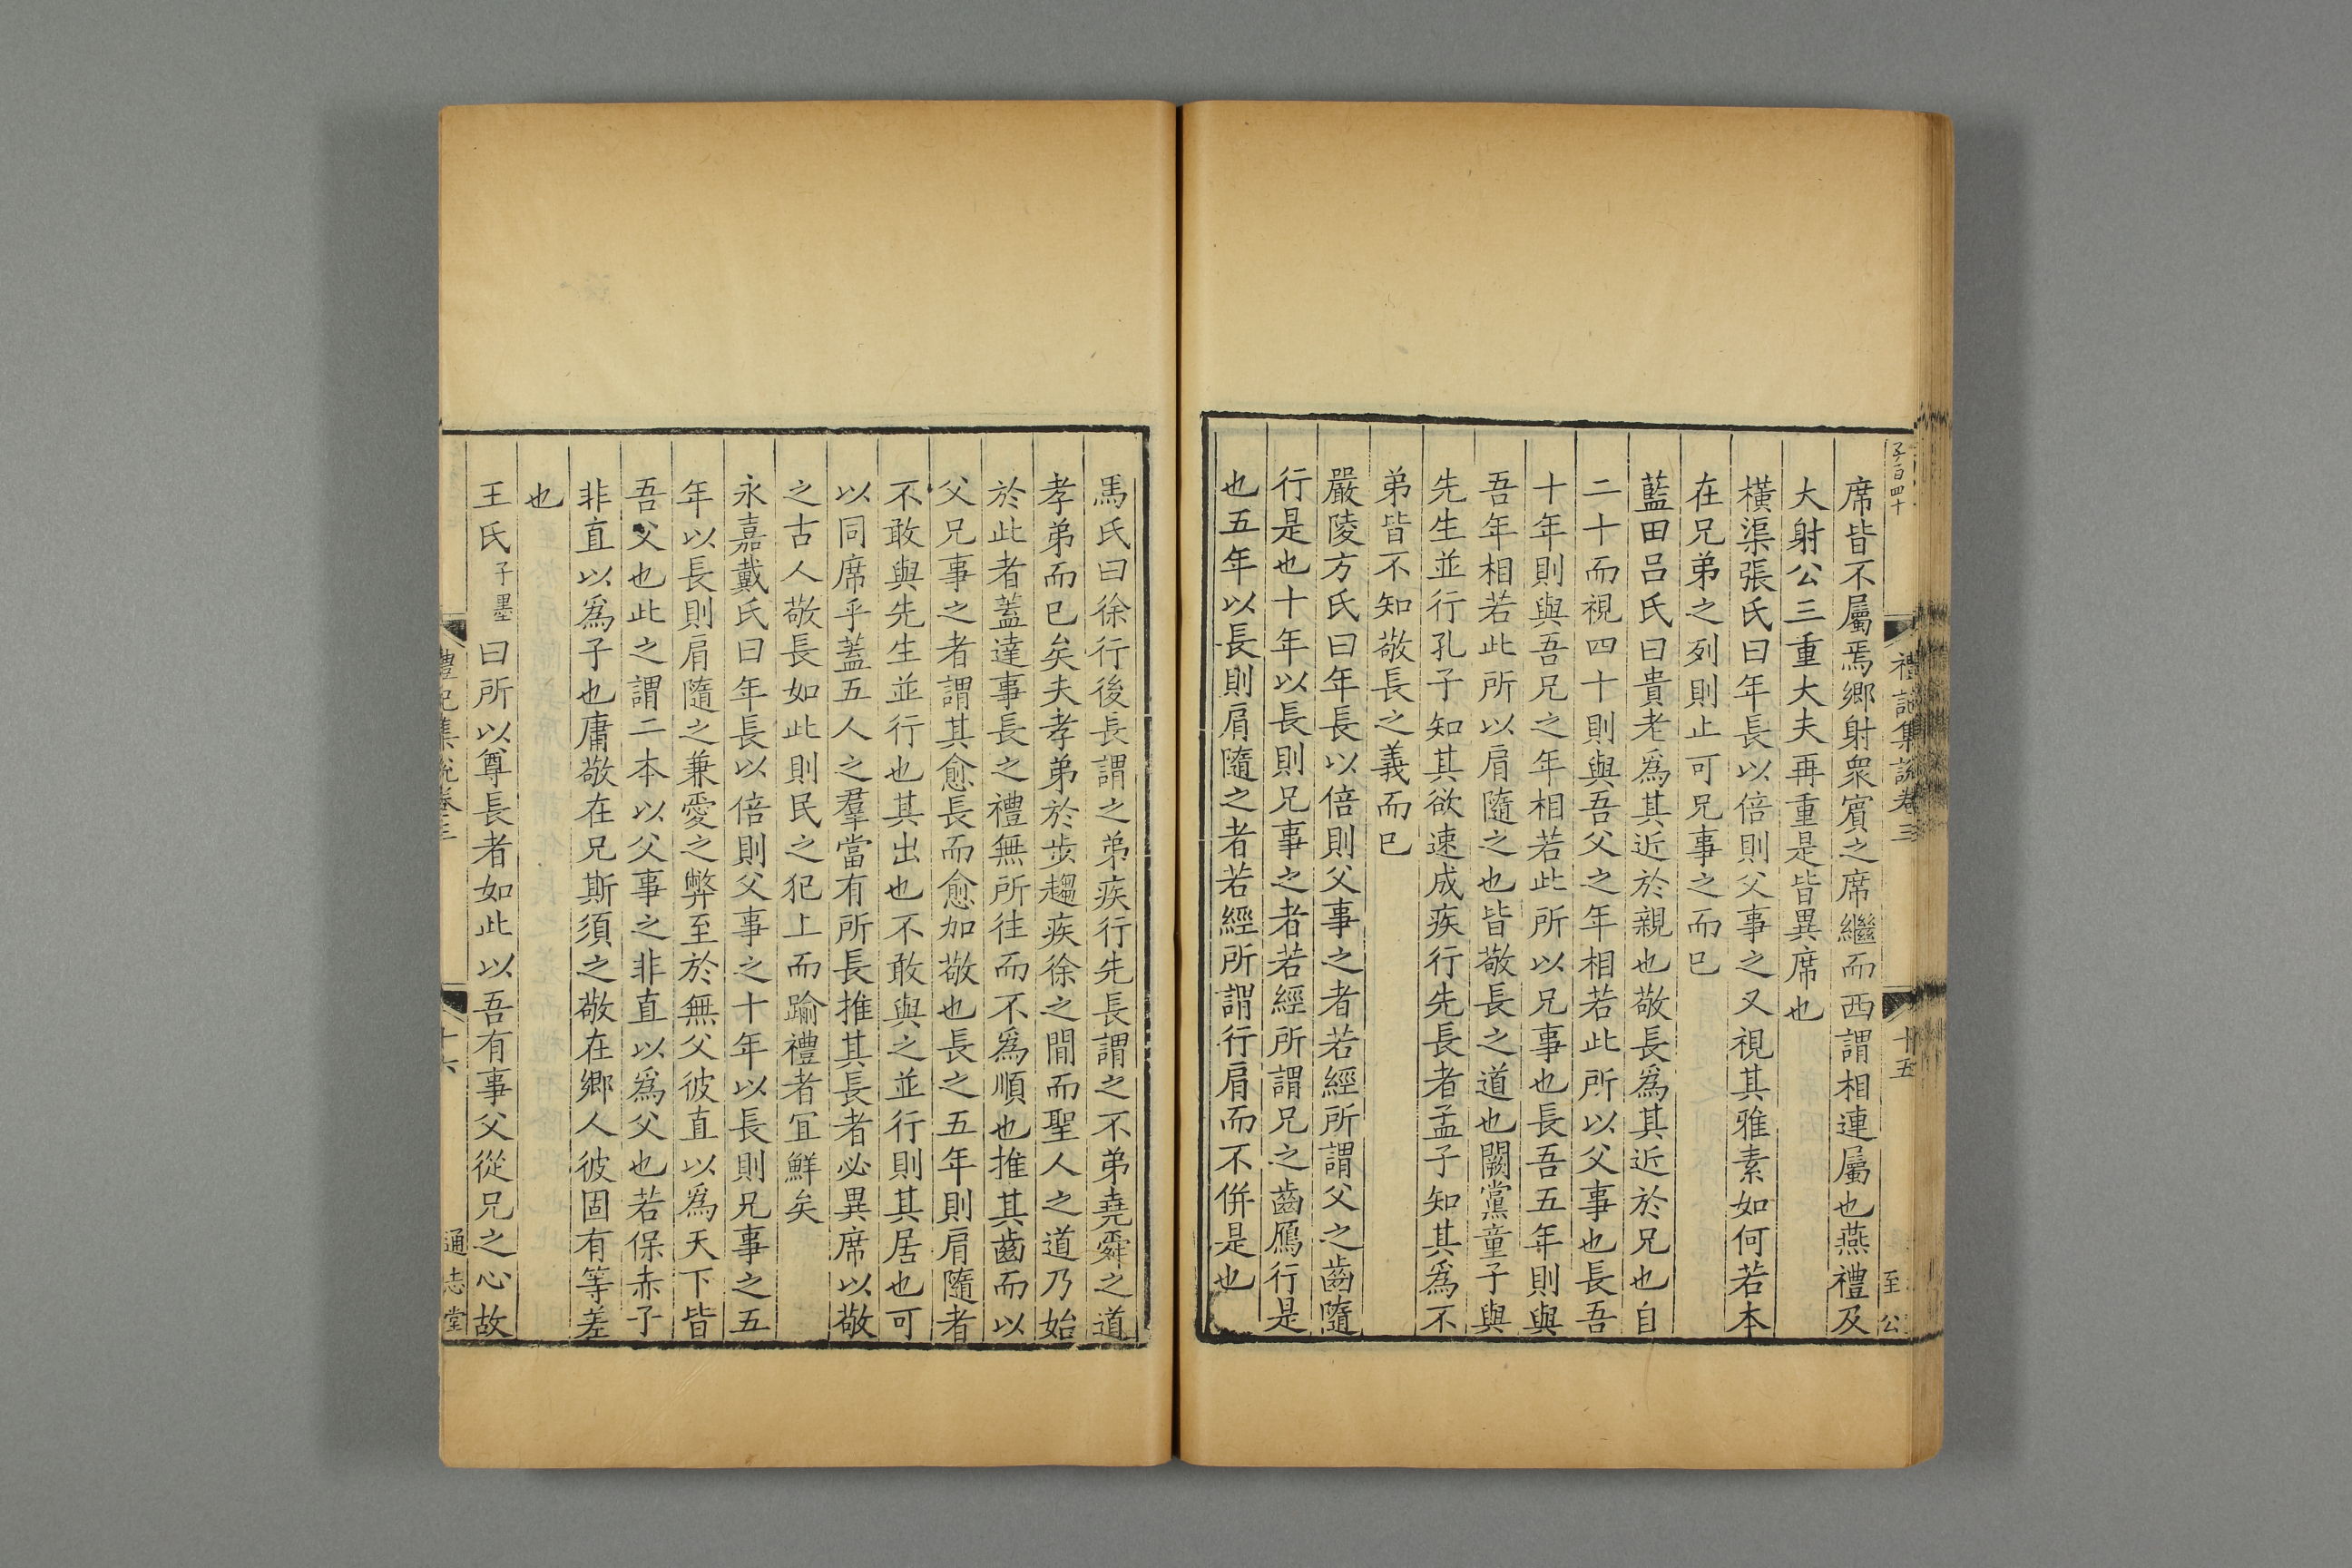 子百四十
禮記集說卷三
十五
至公
席皆不屬焉鄉射衆賓之席繼而西謂相連屬也燕禮及
大射公三重大夫再重是皆異席也
橫渠張氏曰年長以倍則父事之又視其雅素如何若本
在兄弟之列則止可兄事之而已
藍田呂氏曰貴老爲其近於親也敬長爲其近於兄也自
二十而視四十則與吾父之年相若此所以父事也長吾
十年則與吾兄之年相若此所以兄事也長吾五年則與
吾年相若此所以肩隨之也皆敬長之道也闕黨童子與
先生並行孔子知其欲速成疾行先長者孟子知其爲不
弟皆不知敬長之義而已
嚴陵方氏曰年長以倍則父事之者若經所謂父之齒隨
行是也十年以長則兄事之者若經所謂兄之齒鴈行是
也五年以長則肩隨之者若經所謂行肩而不併是也
馬氏曰徐行後長謂之弟疾行先長謂之不弟堯舜之道
孝弟而已矣夫孝弟於步趨疾徐之閒而聖人之道乃始
於此者蓋達事長之禮無所往而不爲順也推其齒而以
父兄事之者謂其愈長而愈加敬也長之五年則肩隨者
不敢與先生並行也其出也不敢與之並行則其居也可
以同席乎蓋五人之羣當有所長推其長者必異席以敬
之古人敬長如此則民之犯上而踰禮者宜鮮矣
永嘉戴氏曰年長以倍則父事之十年以長則兄事之五
年以長則肩隨之兼愛之弊至於無父彼直以爲天下皆
吾父也此之謂二本以父事之非直以爲父也若保赤子
非直以爲子也庸敬在兄斯須之敬在鄉人彼固有等差
也
王氏子墨曰所以尊長者如此以吾有事父從兄之心故
禮記集說卷三
十六
通志堂